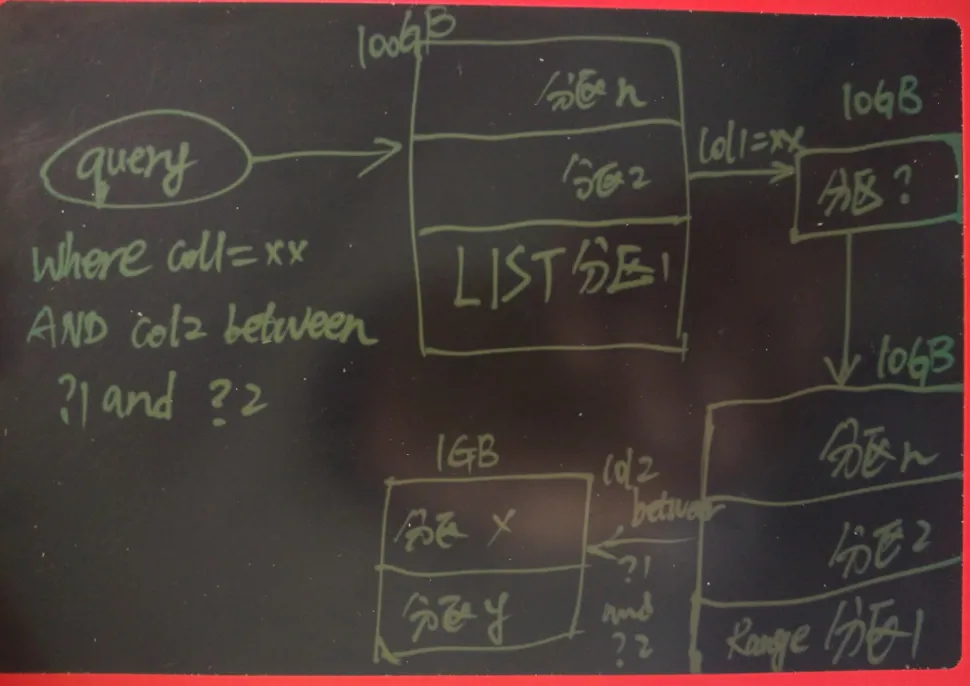 100GB
分区n
分区2
LIST分区1
query
where col1=xx
AND col2 between
?1 and ?2
col1=xx
10GB
分区?
10GB
分区n
分区2
Range 分区1
col2
between
?1
and
?2
1GB
分区 x
分区 y